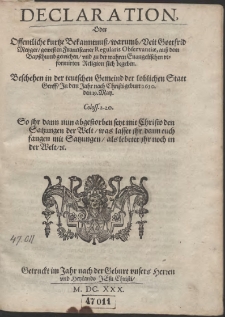 DECLARATION,
Oder
Offentliche kurtze Bekanntnuß/ warumb/ Veit Gottfrid
Metzger/ gewesster Franciscaner Regularis Observantiæ, auß dem
Bapsthumb gewichen/ vnd zu der wahren Euangelischen re-
formirten Religion sich begeben.
Beschehen in der teutschen Gemeind der loblichen Statt
Genff/ In dem Jahr nach Christi geburt 1630.
den 19. Maij.
Coloss. 2. 20.
So ihr dann nun abgestorben seyt mit Christo den
Satzungen der Welt/ was lasset ihr dann euch
fangen mit Satzungen/ als lebetet ihr noch in
der Welt/ ꝛc.
Getruckt im Jahr nach der Geburt vnsers Herren
vnd Heylands Jesu Christi/
M. DC. XXX.
47011